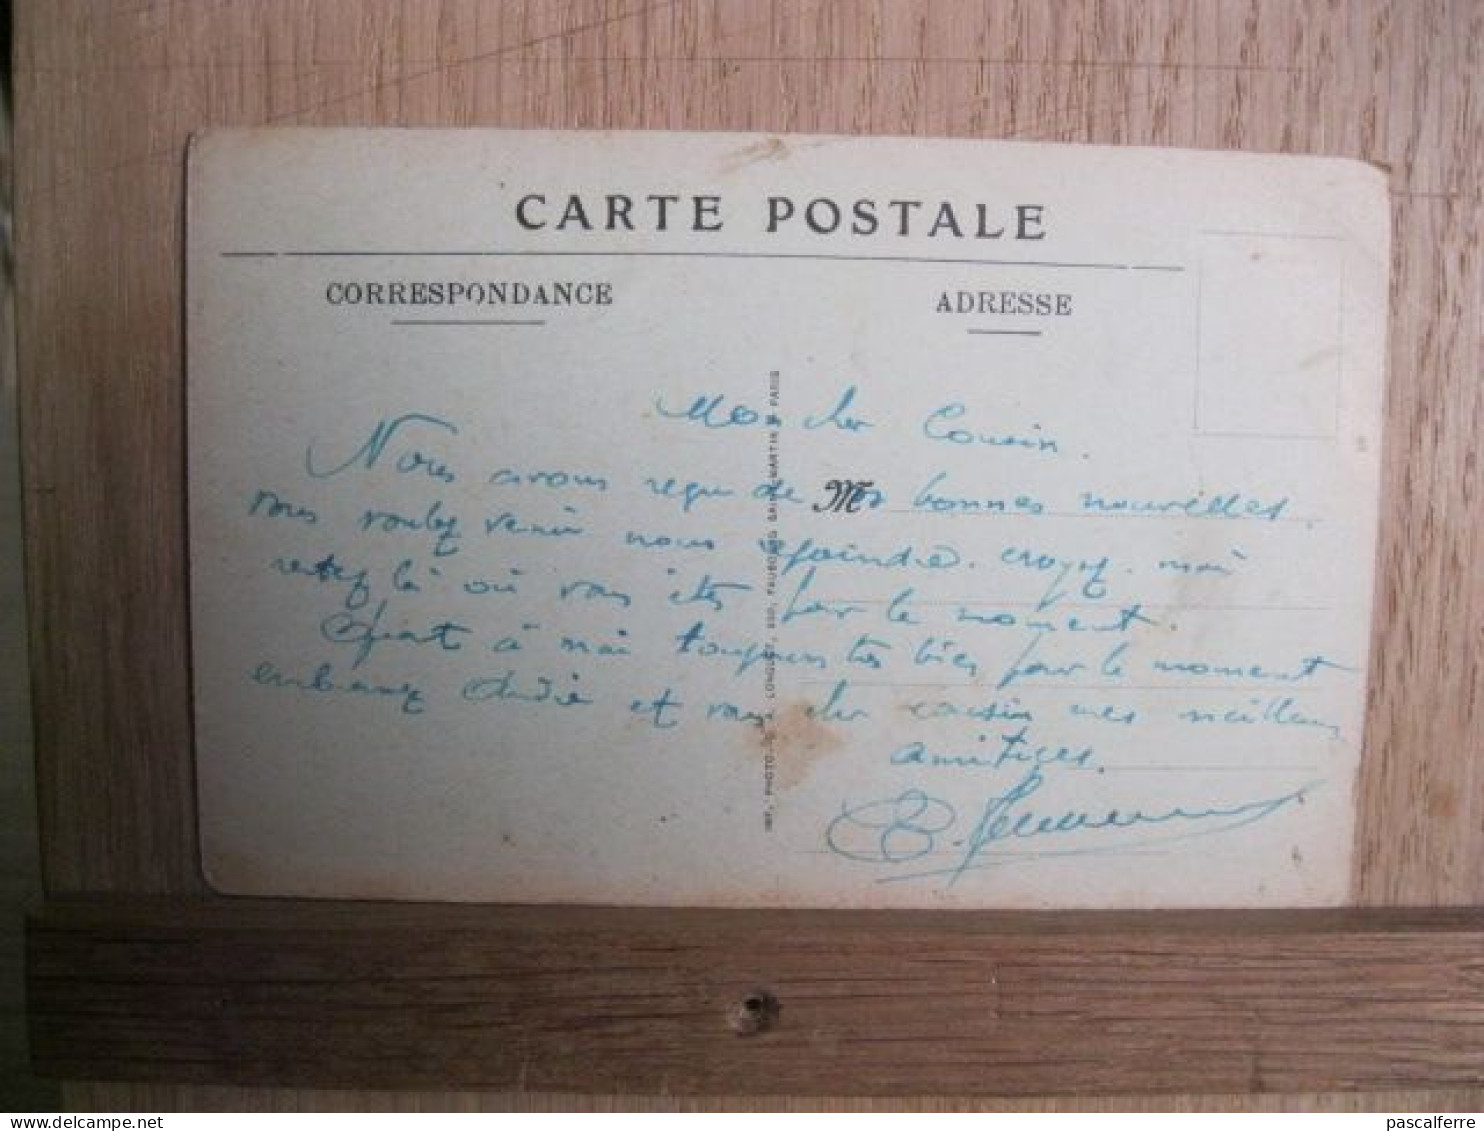 CARTE POSTALE
CORRESPONDANCE
ADRESSE
Mon cher Cousin.
Nous avons reçu de vos bonnes nouvelles.
M
vous voulez venir nous rejoindre. croyez. moi
restez là où vous êtes pour le moment.
Quant à moi toujours très bien pour le moment
embrassez André et vous cher cousin mes meilleurs
amitiges.
IMP. PHOTO. LONGUET, 250, FAUBOURG SAINT-MARTIN PARIS
pascalferre